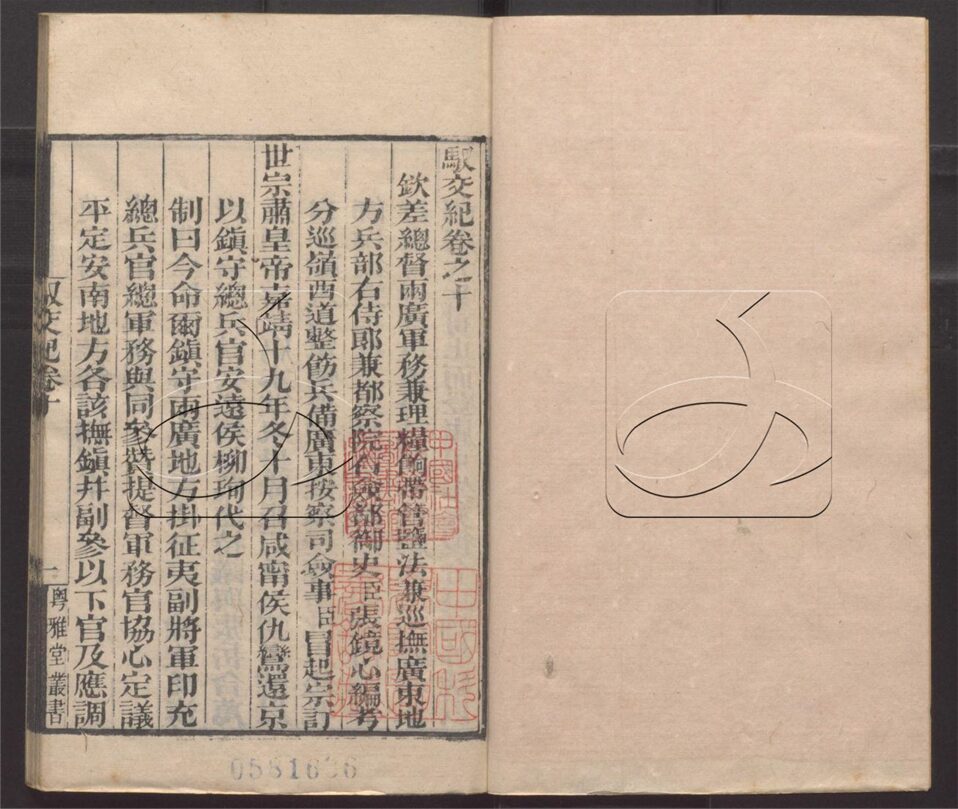 馭交紀卷之十
欽差總督兩廣軍務兼理糧餉帶管鹽法兼巡撫廣東地
方兵部右侍郎兼都察院右僉都御史臣張鏡心編考
分巡嶺西道整飭兵備廣東按察司僉事臣冒起宗訂
世宗肅皇帝嘉靖十九年冬十月召咸甯侯仇鸞還京
以鎮守總兵官安遠侯柳珣代之
制曰今命爾鎮守兩廣地方掛征夷副將軍印充
總兵官總軍務與同參贊提督軍務官協心定議
平定安南地方各該撫鎮并副參以下官及應調
馭交紀卷十
一
粵雅堂叢書
0581636